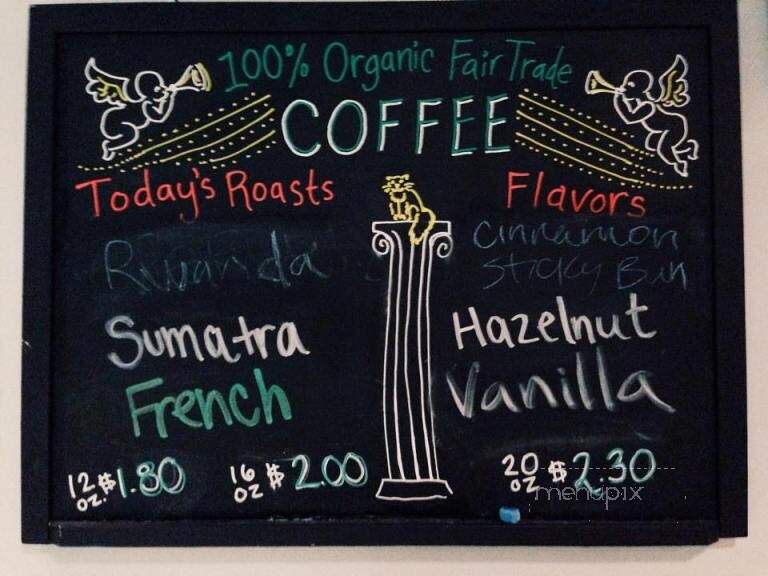 100% Organic Fair Trade
COFFEE
Today's Roasts
Rwanda
Sumatra
French
12 oz. $1.80
16 oz $2.00
Flavors
Cinnamon
Sticky Bun
Hazelnut
Vanilla
20 oz $2.30
menupix